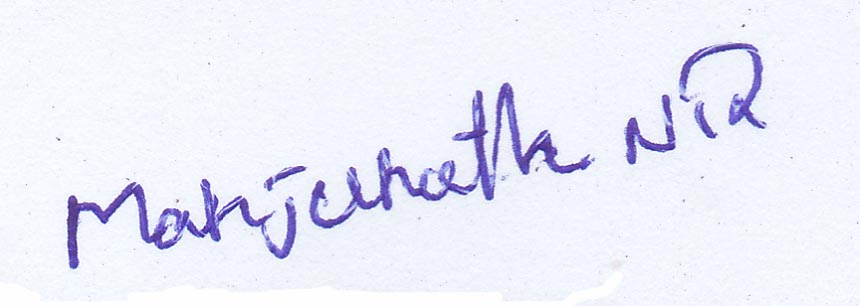 Manjunath N R